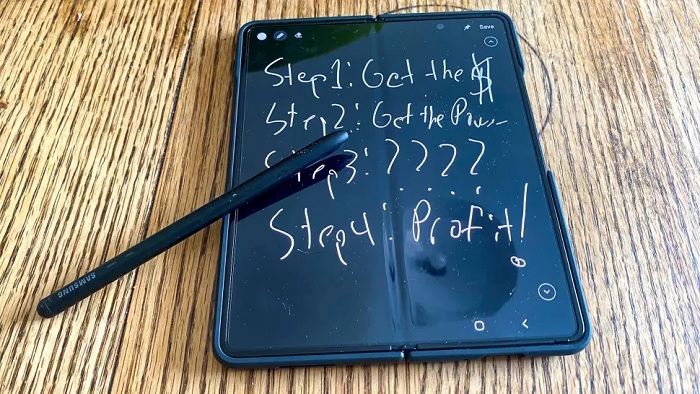 Save
Step1: Get the $
Step2: Get the
Step3: ????
Step4: Profit!
SAMSUNG